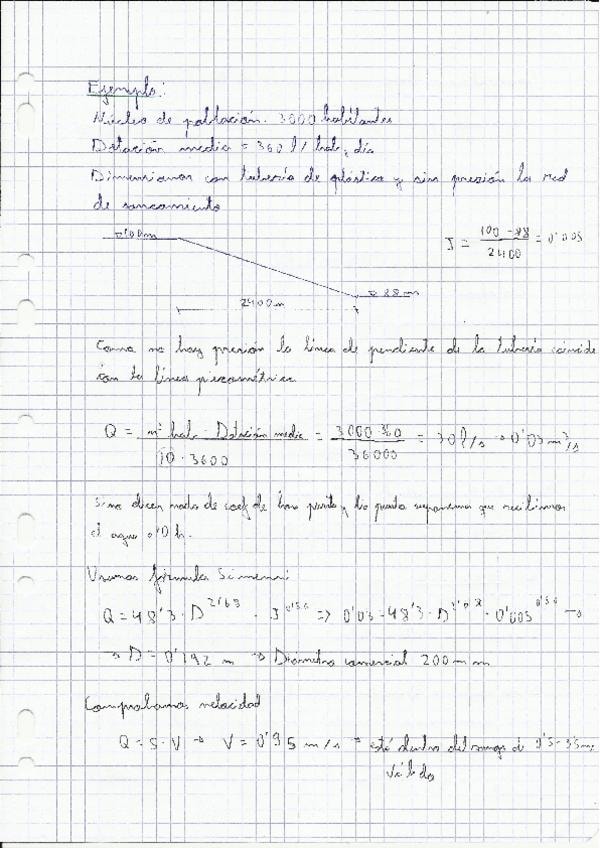 Ejemplo:
Núcleo de población: 3000 habitantes
Dotación media = 360 l/hab, día
Dimensionar con tubería de plástico y sin presión la red
de saneamiento
100m
J = (100 - 88) / 2400 = 0'005
88m
2400m
Como no hay presión la línea de pendiente de la tubería coincide
con la línea piezométrica
Q = nº hab · Dotación media / 10 · 3600 = 3000 · 360 / 36000 = 30 l/s → 0'03 m³/s
Si no dicen nada de coef de hora punta y lo pueda suponemos que recibimos
el agua 10 h.
Usamos fórmula
Q = 48'3 · D^2'68 · J^0'56 => 0'03 = 48'3 · D · 0'005^0'56 →
→ D = 0'192 m → Diámetro comercial 200 mm
Comprobamos velocidad
Q = S · V → V = 0'95 m/s = está dentro del rango de 0'5-3'5 m/s
Válido